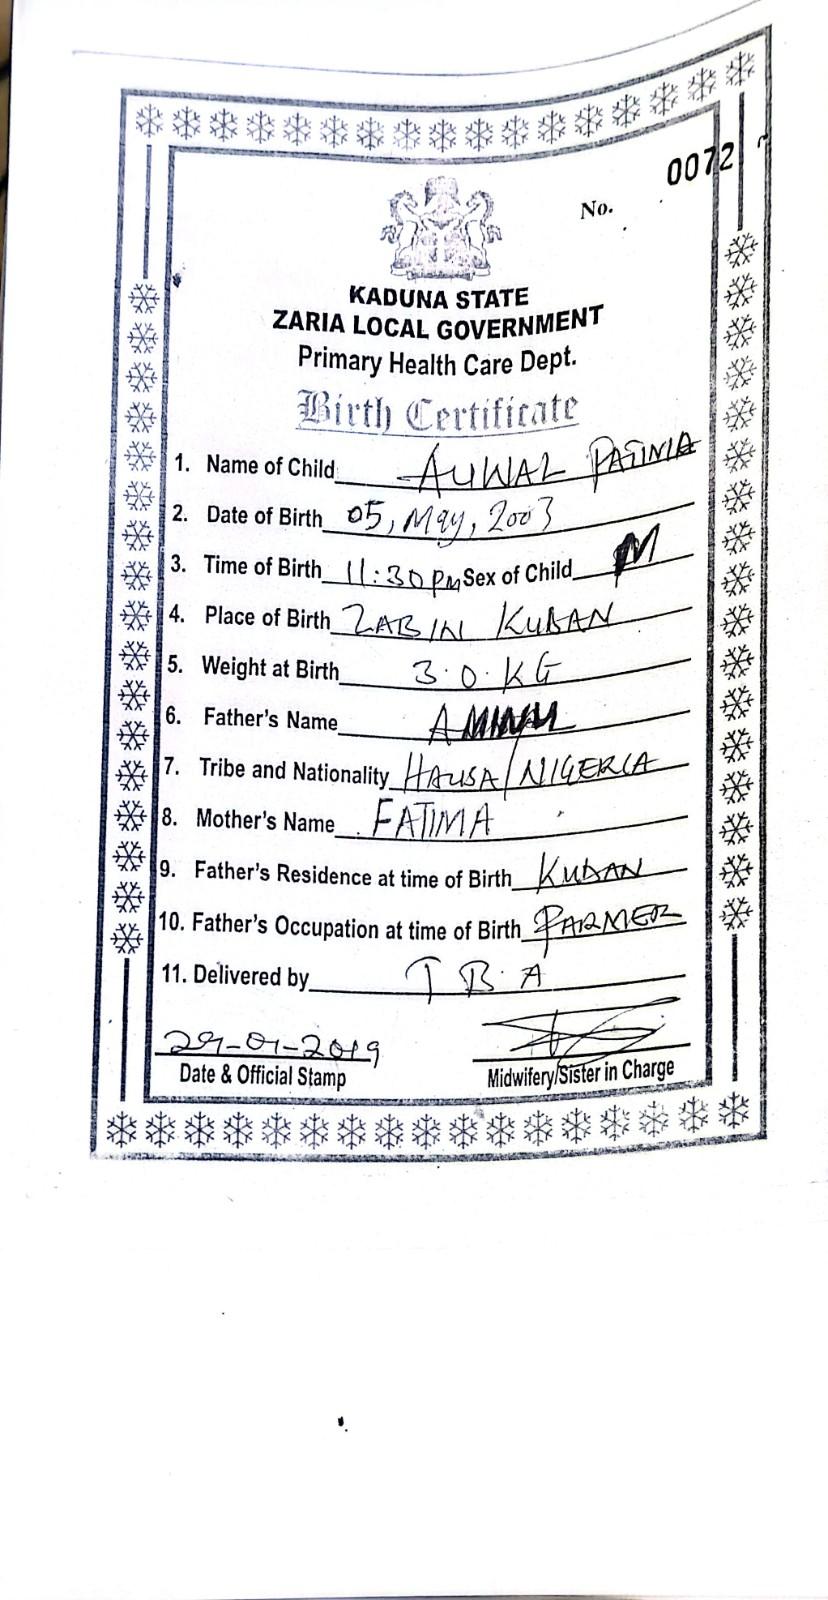 0072
No.
KADUNA STATE
ZARIA LOCAL GOVERNMENT
Primary Health Care Dept.
Birth Certificate
1. Name of Child AUWAL
2. Date of Birth 05, May, 2003
3. Time of Birth 11:30pm Sex of Child M
4. Place of Birth ZABIN KUDAN
5. Weight at Birth 3.0.KG
6. Father's Name AMINU
7. Tribe and Nationality HAUSA/NIGERIA
8. Mother's Name FATIMA
9. Father's Residence at time of Birth KUDAN
10. Father's Occupation at time of Birth FARMER
11. Delivered by T B A
29-01-2019
Date & Official Stamp Midwifery/Sister in Charge